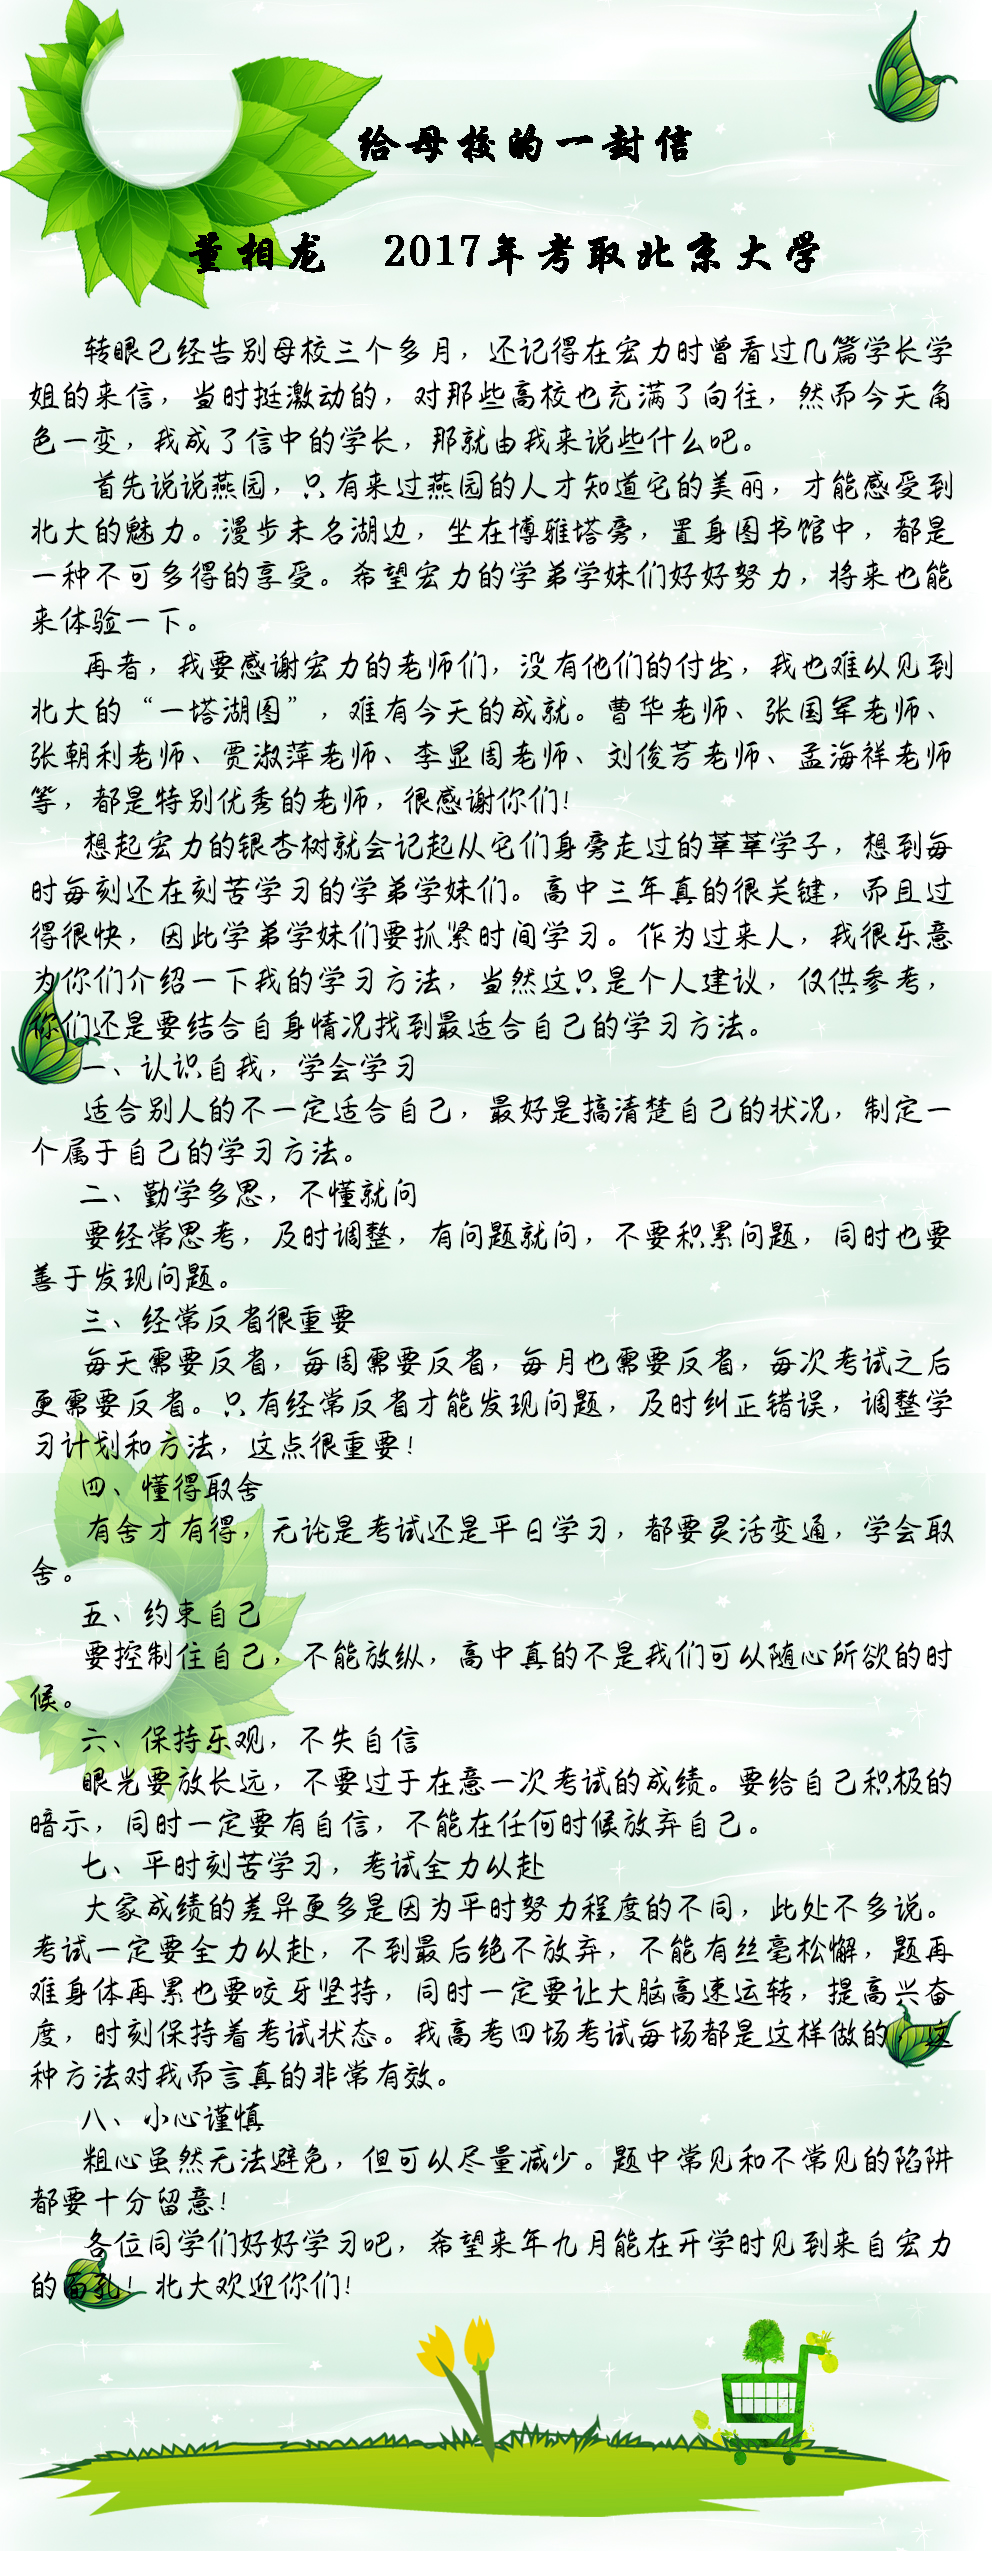 给母校的一封信
董相龙 2017年考取北京大学
转眼已经告别母校三个多月，还记得在宏力时曾看过几篇学长学
姐的来信，当时挺激动的，对那些高校也充满了向往，然而今天角
色一变，我成了信中的学长，那就由我来说些什么吧。
首先说说燕园，只有来过燕园的人才知道它的美丽，才能感受到
北大的魅力。漫步未名湖边，坐在博雅塔旁，置身图书馆中，都是
一种不可多得的享受。希望宏力的学弟学妹们好好努力，将来也能
来体验一下。
再者，我要感谢宏力的老师们，没有他们的付出，我也难以见到
北大的“一塔湖图”，难有今天的成就。曹华老师、张国军老师、
张朝利老师、贾淑萍老师、李显周老师、刘俊芳老师、孟海祥老师
等，都是特别优秀的老师，很感谢你们！
想起宏力的银杏树就会记起从它们身旁走过的莘莘学子，想到每
时每刻还在刻苦学习的学弟学妹们。高中三年真的很关键，而且过
得很快，因此学弟学妹们要抓紧时间学习。作为过来人，我很乐意
为你们介绍一下我的学习方法，当然这只是个人建议，仅供参考，
你们还是要结合自身情况找到最适合自己的学习方法。
一、认识自我，学会学习
适合别人的不一定适合自己，最好是搞清楚自己的状况，制定一
个属于自己的学习方法。
二、勤学多思，不懂就问
要经常思考，及时调整，有问题就问，不要积累问题，同时也要
善于发现问题。
三、经常反省很重要
每天需要反省，每周需要反省，每月也需要反省，每次考试之后
更需要反省。只有经常反省才能发现问题，及时纠正错误，调整学
习计划和方法，这点很重要！
四、懂得取舍
有舍才有得，无论是考试还是平日学习，都要灵活变通，学会取
舍。
五、约束自己
要控制住自己，不能放纵，高中真的不是我们可以随心所欲的时
候。
六、保持乐观，不失自信
眼光要放长远，不要过于在意一次考试的成绩。要给自己积极的
暗示，同时一定要有自信，不能在任何时候放弃自己。
七、平时刻苦学习，考试全力以赴
大家成绩的差异更多是因为平时努力程度的不同，此处不多说。
考试一定要全力以赴，不到最后绝不放弃，不能有丝毫松懈，题再
难身体再累也要咬牙坚持，同时一定要让大脑高速运转，提高兴奋
度，时刻保持着考试状态。我高考四场考试每场都是这样做的，这
种方法对我而言真的非常有效。
八、小心谨慎
粗心虽然无法避免，但可以尽量减少。题中常见和不常见的陷阱
都要十分留意！
各位同学们好好学习吧，希望来年九月能在开学时见到来自宏力
的面孔！北大欢迎你们！